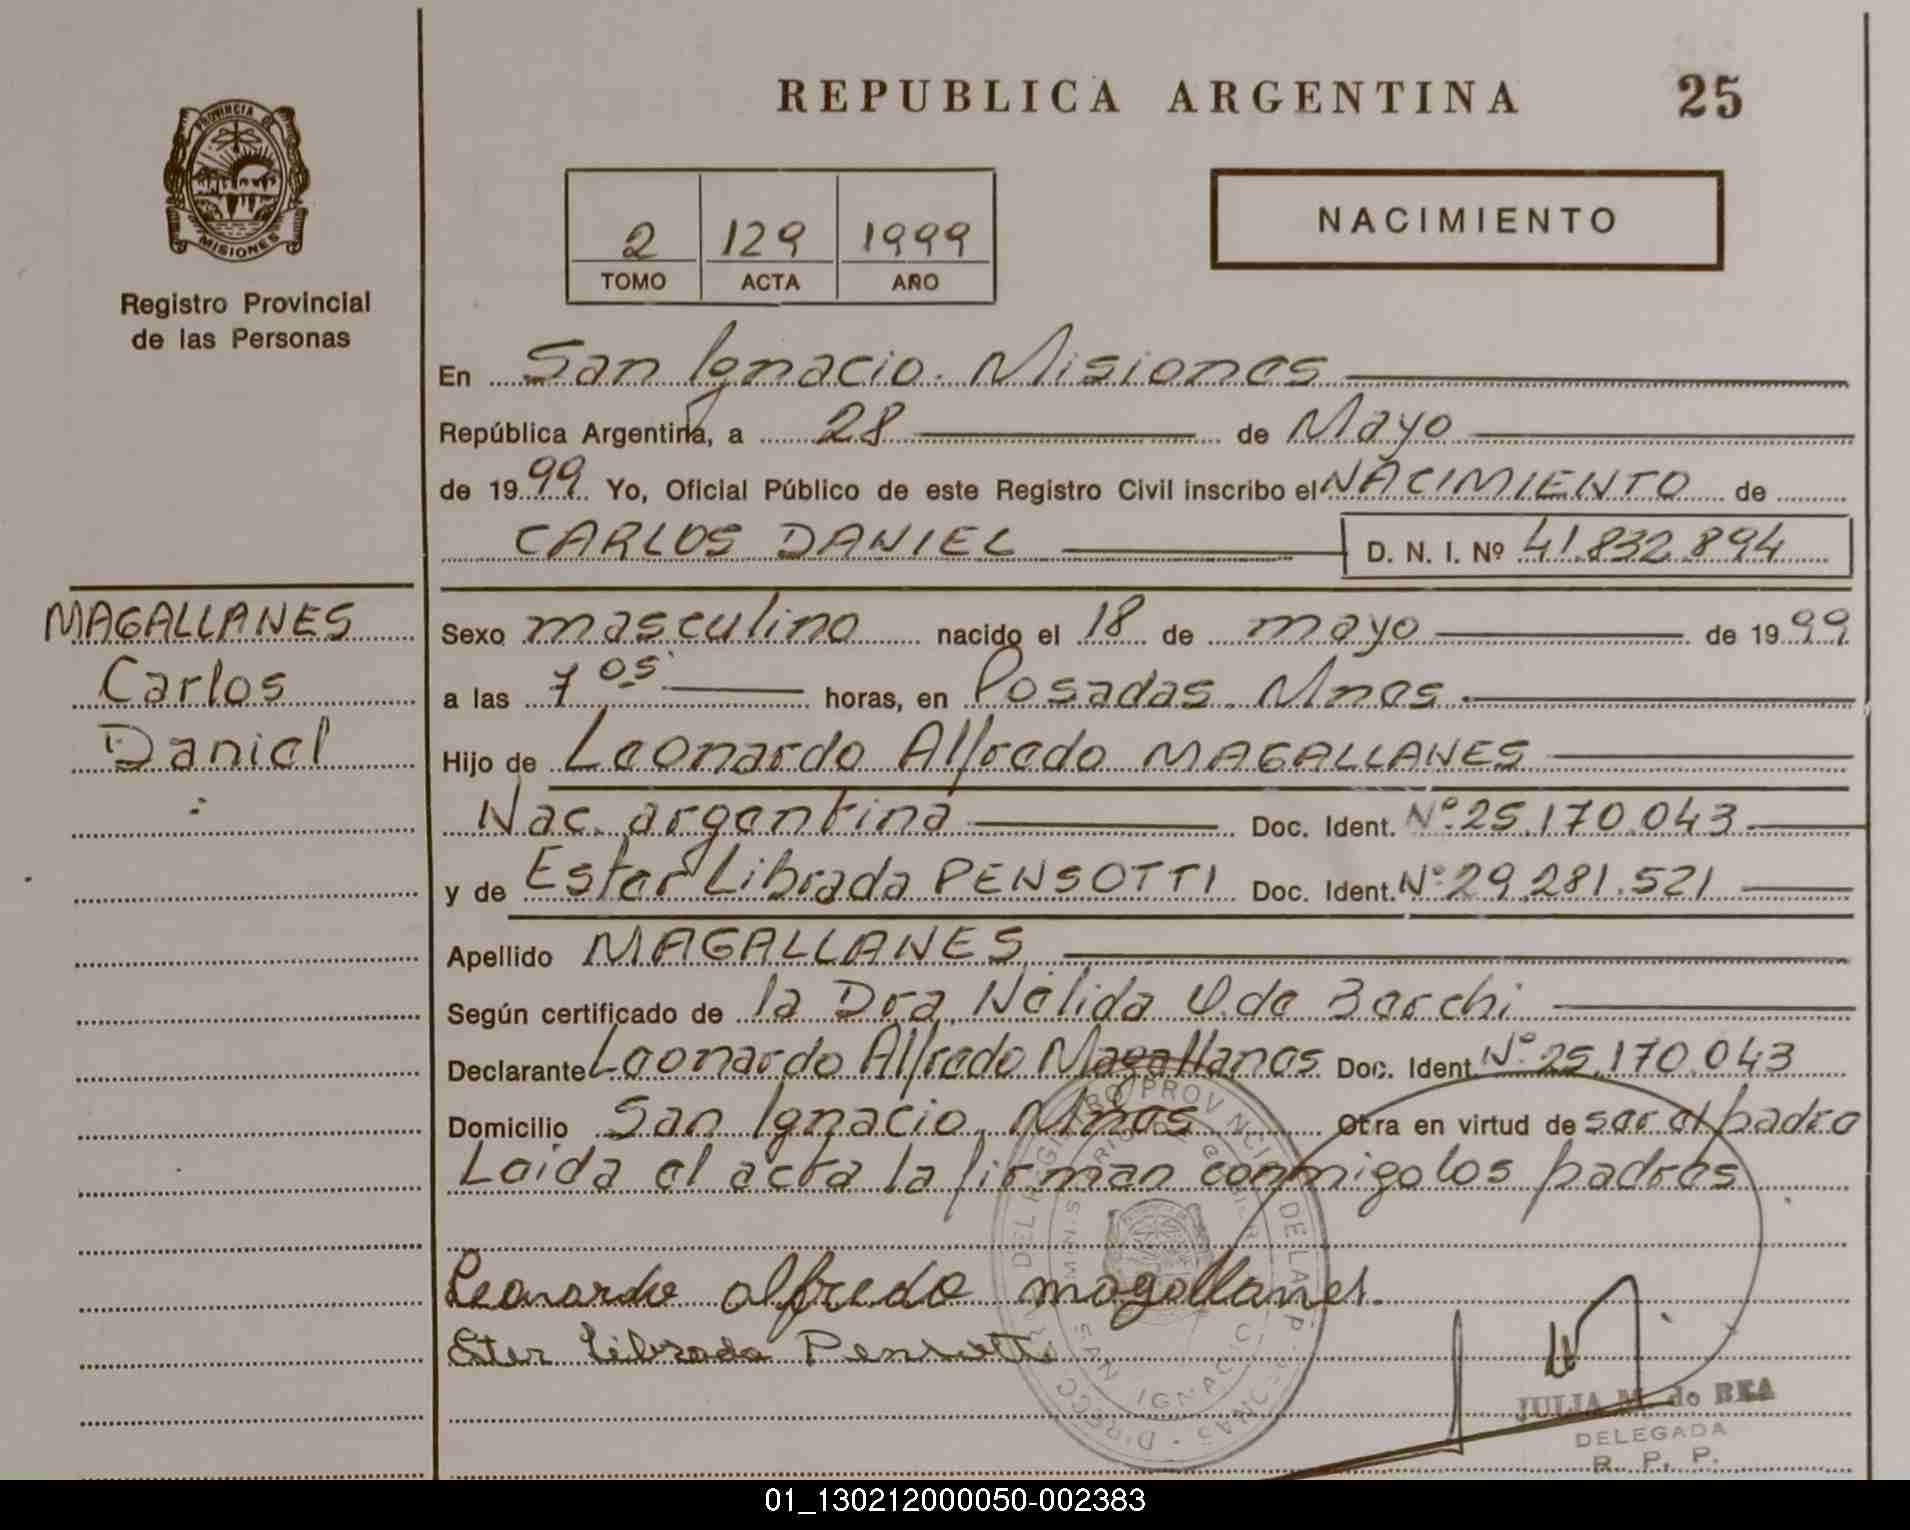 REPUBLICA ARGENTINA 25
PROVINCIA DE
MISIONES
Registro Provincial
de las Personas
2 129 1999
TOMO ACTA AÑO
NACIMIENTO
En San Ignacio. Misiones
República Argentina, a 28 de Mayo
de 1999 Yo, Oficial Público de este Registro Civil inscribo el NACIMIENTO de
CARLOS DANIEL D. N. I. Nº 41.832.894
MAGALLANES
Carlos
Daniel
Sexo masculino nacido el 18 de mayo de 1999
a las 7 05 horas, en Posadas. Mnes.
Hijo de Leonardo Alfredo MAGALLANES
Nac. argentina Doc. Ident. Nº 25.170.043
y de Ester Librada PENSOTTI Doc. Ident. Nº 29.281.521
Apellido MAGALLANES
Según certificado de la Dra. Nélida de Barchi
Declarante Leonardo Alfredo Magallanes Doc. Ident. Nº 25.170.043
Domicilio San Ignacio. Mnes Otra en virtud de ser el padre
Leida el acta la firman conmigo los padres
Leonardo alfredo magallanes.
Ster librada Pensotti
SAN IGNACIO
JULIA M. de REA
DELEGADA
R. P. P.
01_130212000050-002383